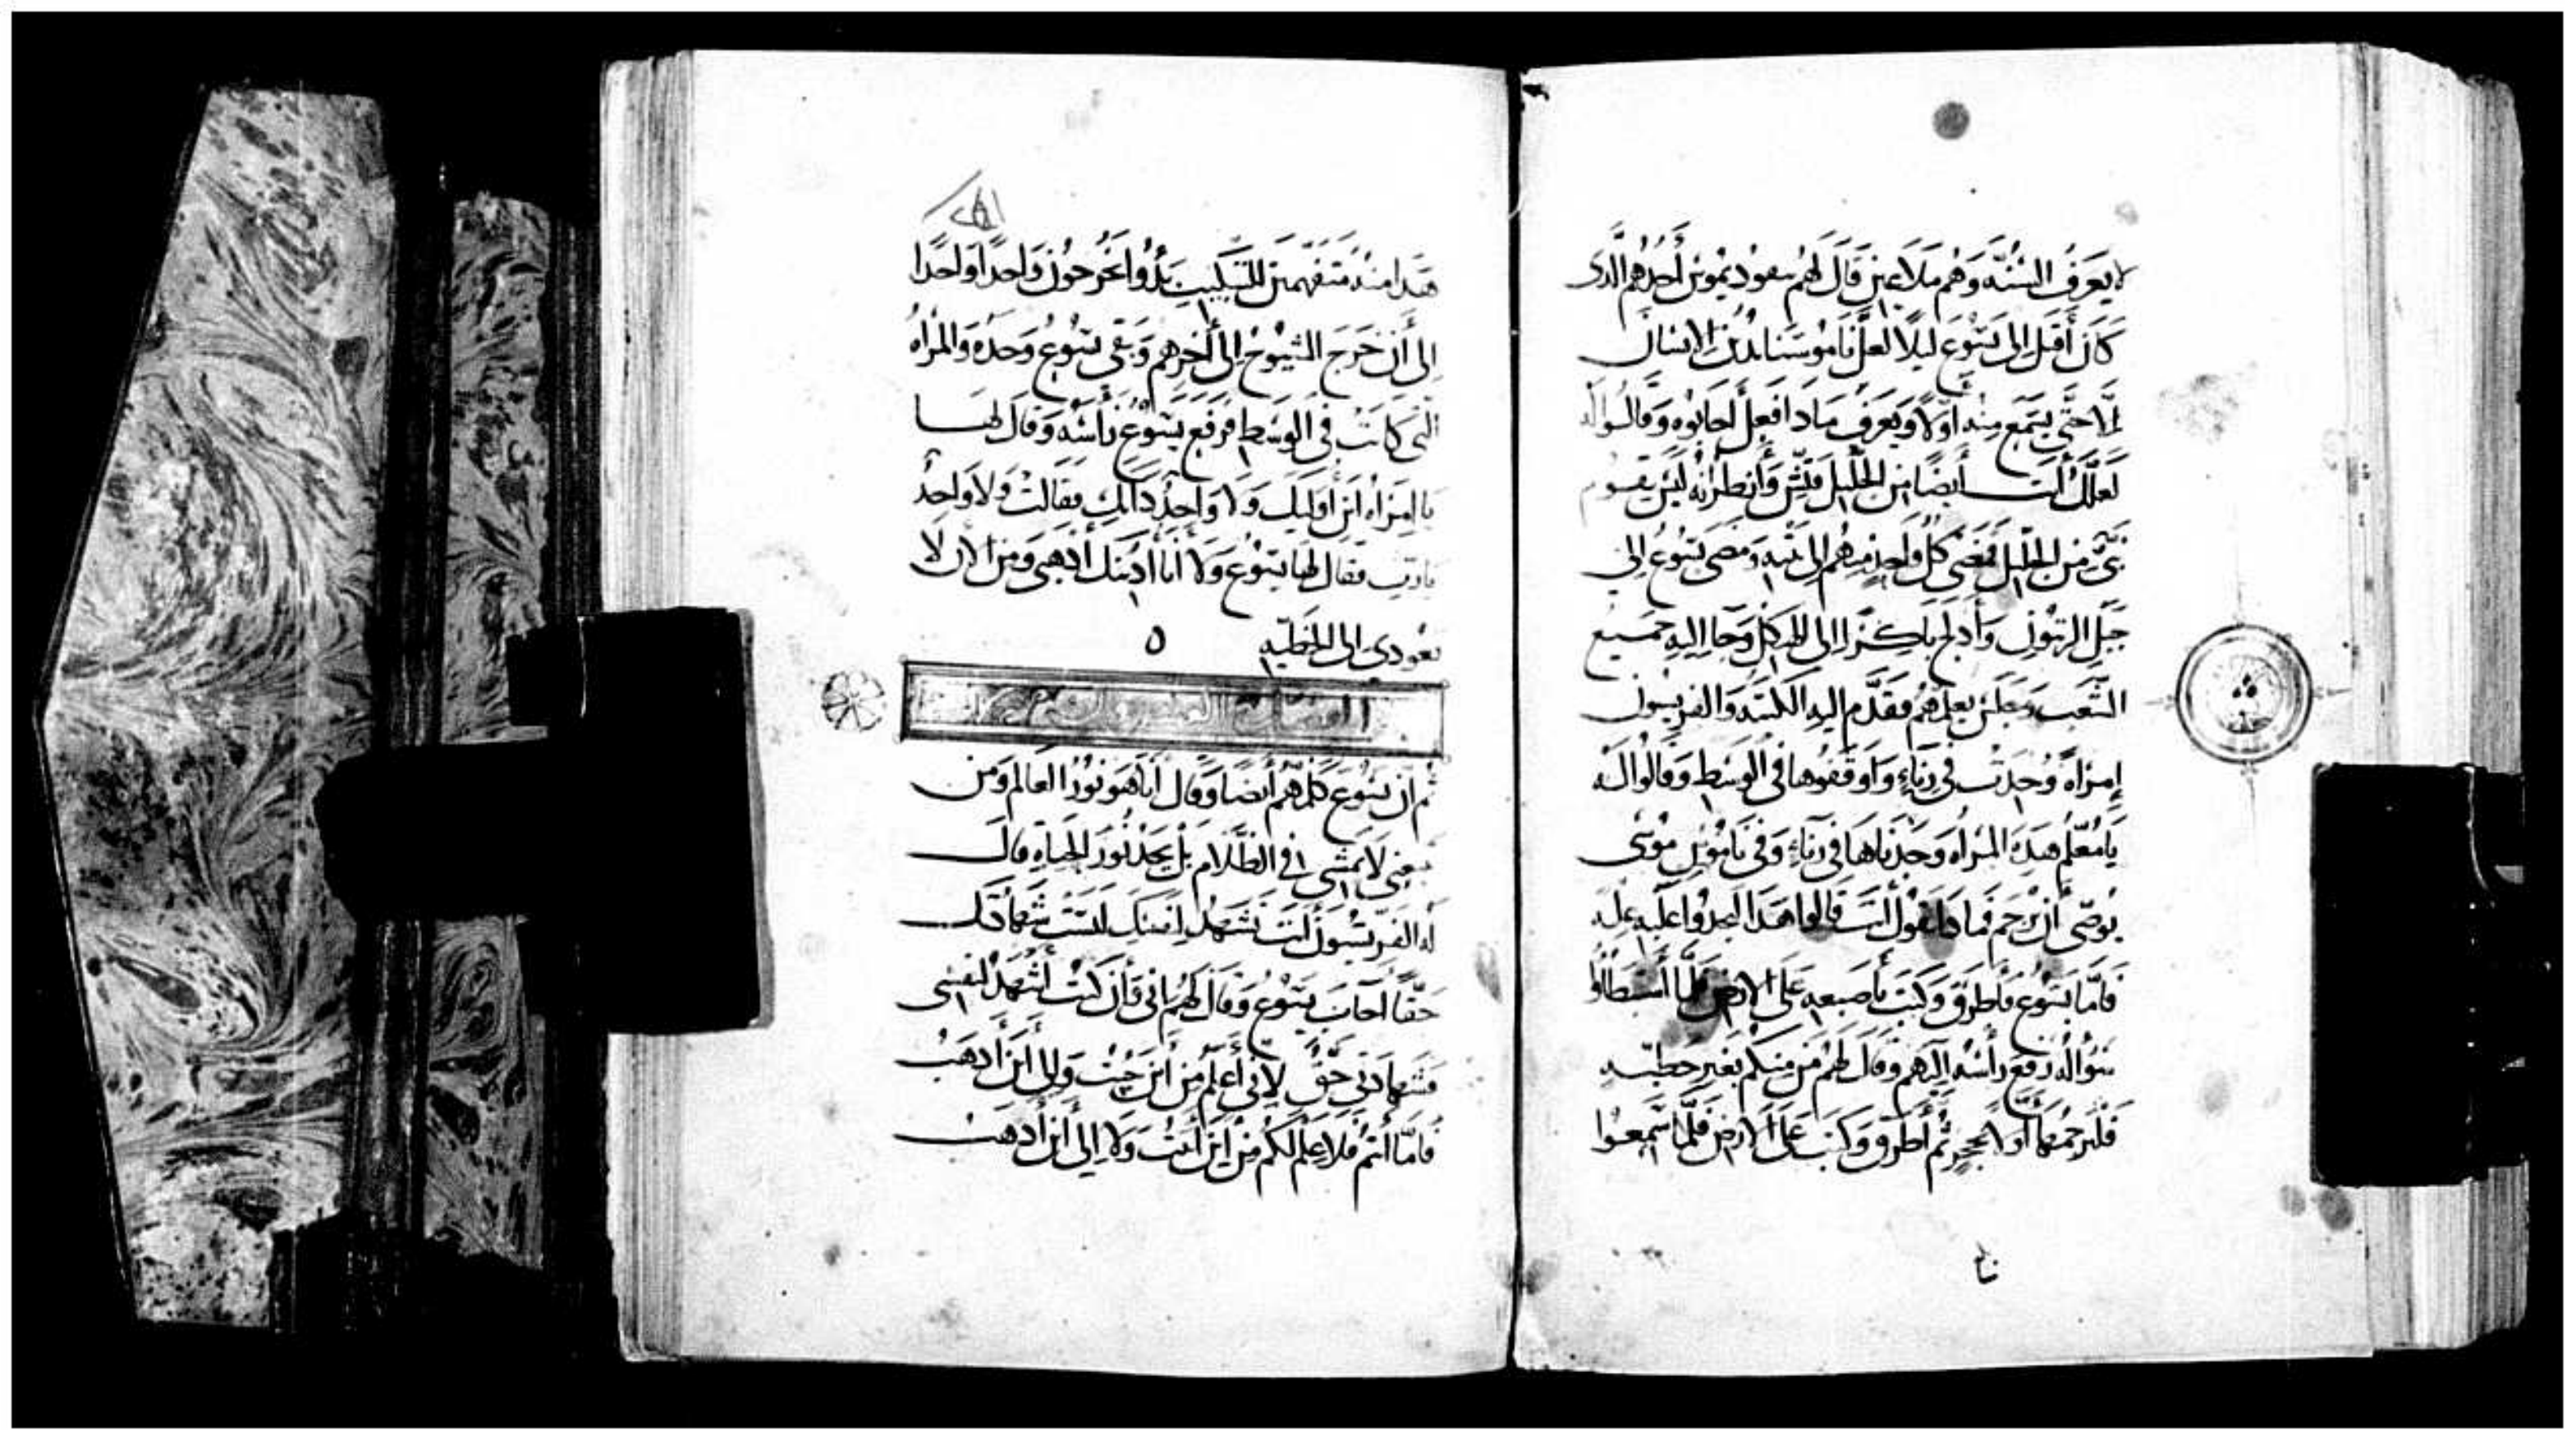 لا يَعرَف السُنّه وَهُم مَلاعين قَالَ لهُم نيقوديموس أحدهم الذى
كَانَ أقبَل إلى يَسُوع ليلًا لعلّ نَاموسَنا يدين الانسَان
إلّا حتّى يَسمَع مِنه أوّلًا وَيعرف مَاذا فعل أجَابُوه وَقالوا له
لَعلّك أنت أيضًا من الجَليل فتّش وَأنظر انه ليسَ يقوم
نبىّ من الجليل فمضى كلّ واحدٍ منهُم إلى بيته وَمَضى يَسُوع إلى
جبَل الزيتون وَأدلج باكرًا إلى الهيكل وَجا اليهِ جَميع
الشّعب وَجلسَ يعلمهُم فقدّم اليه الكتبَه وَالفريسيون
إمرَاه وُجدَت فى زنَاءٍ وَاوقفوها فى الوسَط وَقالوا لَه
يَا مُعلّم هَذِه المرأه وَجدناها فى زنَاءٍ وَفى نَامُوس موسَى
يُوصّى أن ترجَم فما ذا تقول أنتَ قالوا هَذا ليجدوا عليه عله
فَامّا يسُوع فأطرق وَكتبَ بأصبعه عَلى الارض فلمّا أستبطَاوا
سؤاله رَفع رأسَه اليهم وَقال لهُم مَن منكم بغير خطيّه
فليرجمهَا أولًا بحجرٍ ثم أطرق وَكتب عَلى الارض فلمّا سَمعُوا
هَذا منه متفهمين للتبكيت بدُوا يخرجُون وَاحدًا وَاحدًا
إلى أن خرَج الشيوخ إلى أخرهم وَبقى يَسُوع وَحدَه وَالمرأه
التى كانت فى الوسَط فرَفع يسُوع رَأسَه وَقال لهَا
يا امرَأه أين أوليك وَلا وَاحدٌ دانك فقالت وَلا واحدٌ
يَارَب فقال لها يسُوع وَلا أنا أدينك أذهبى وَمن الان لَا
تعودى إلى الخطيّه ه
ثم أن يسُوع كلّمهم أيضًا وَقال أنا هو نورُ العَالم وَمن
تبعنى لا يمشى فى الظّلام بَل يجد نُورَ الحيَاه قالَ
له الفريسُيون أنت تشهَد لنفسك ليسَت شهادتك
حقّا أجَابَ يسُوع وَقال لهُم انى وَان كنت أشهد لنفسى
فشهادتى حقّ لانى أعلم من أين جيت وَإلى أين أذهبُ
فامّا أنتم فلا علم لكم من أين أتيت وَلا إلى أين أذهَب